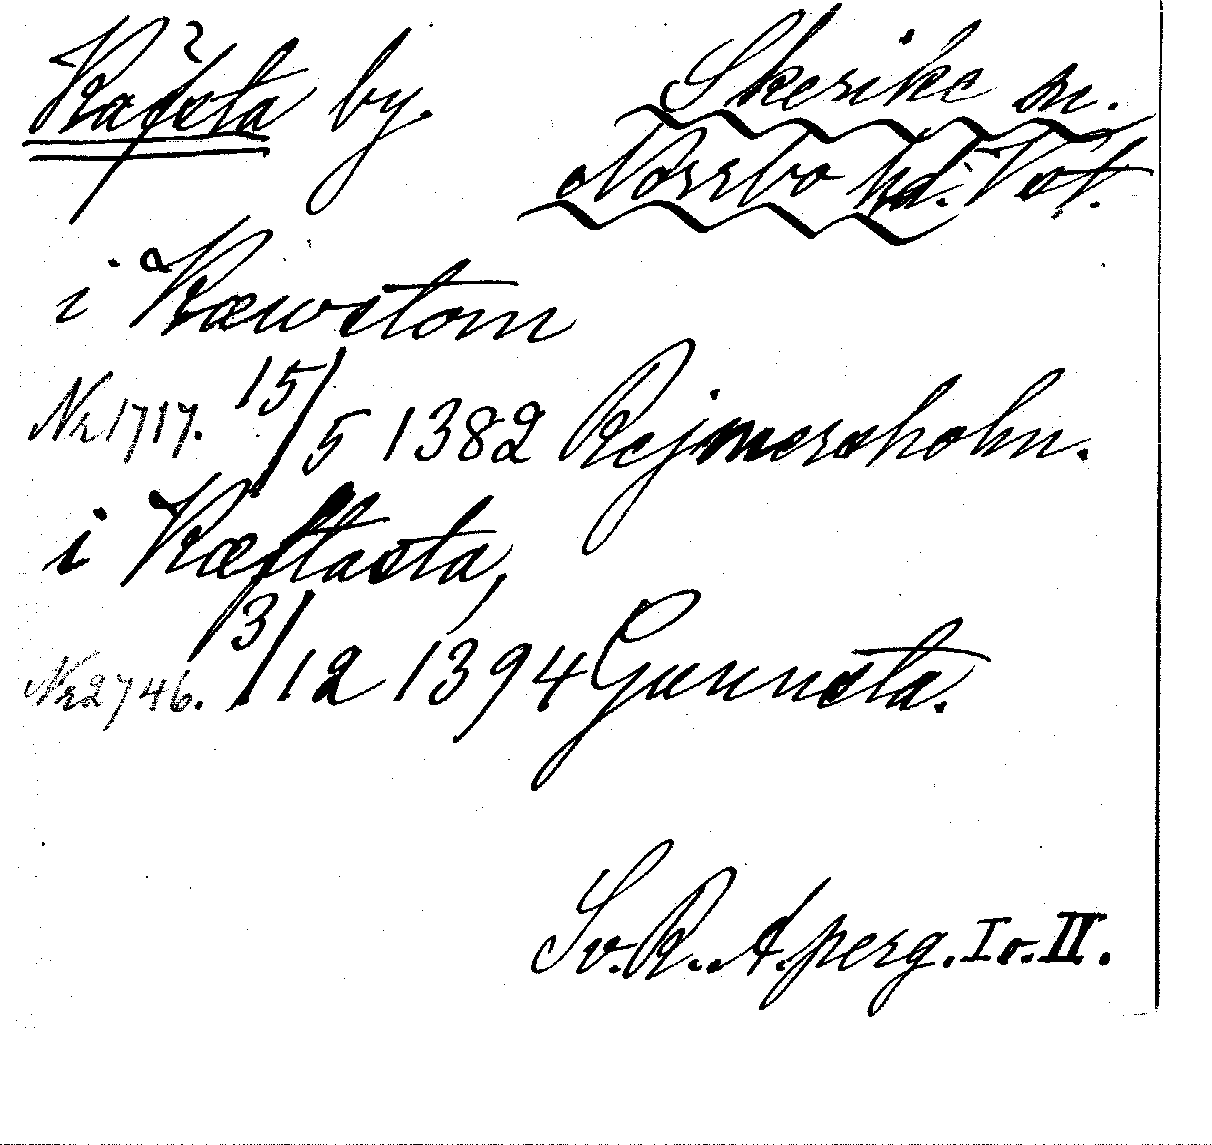 Räfsta by. Skerike sn.
Norrbo hd. Vstl.
i Ræwstom
Nr 1717. 15/5 1382 Rejmersholm.
i Ræftasta,
Nr 2746. 13/12 1394 Gunnsta.
Sv. R. A. perg. I o. II.